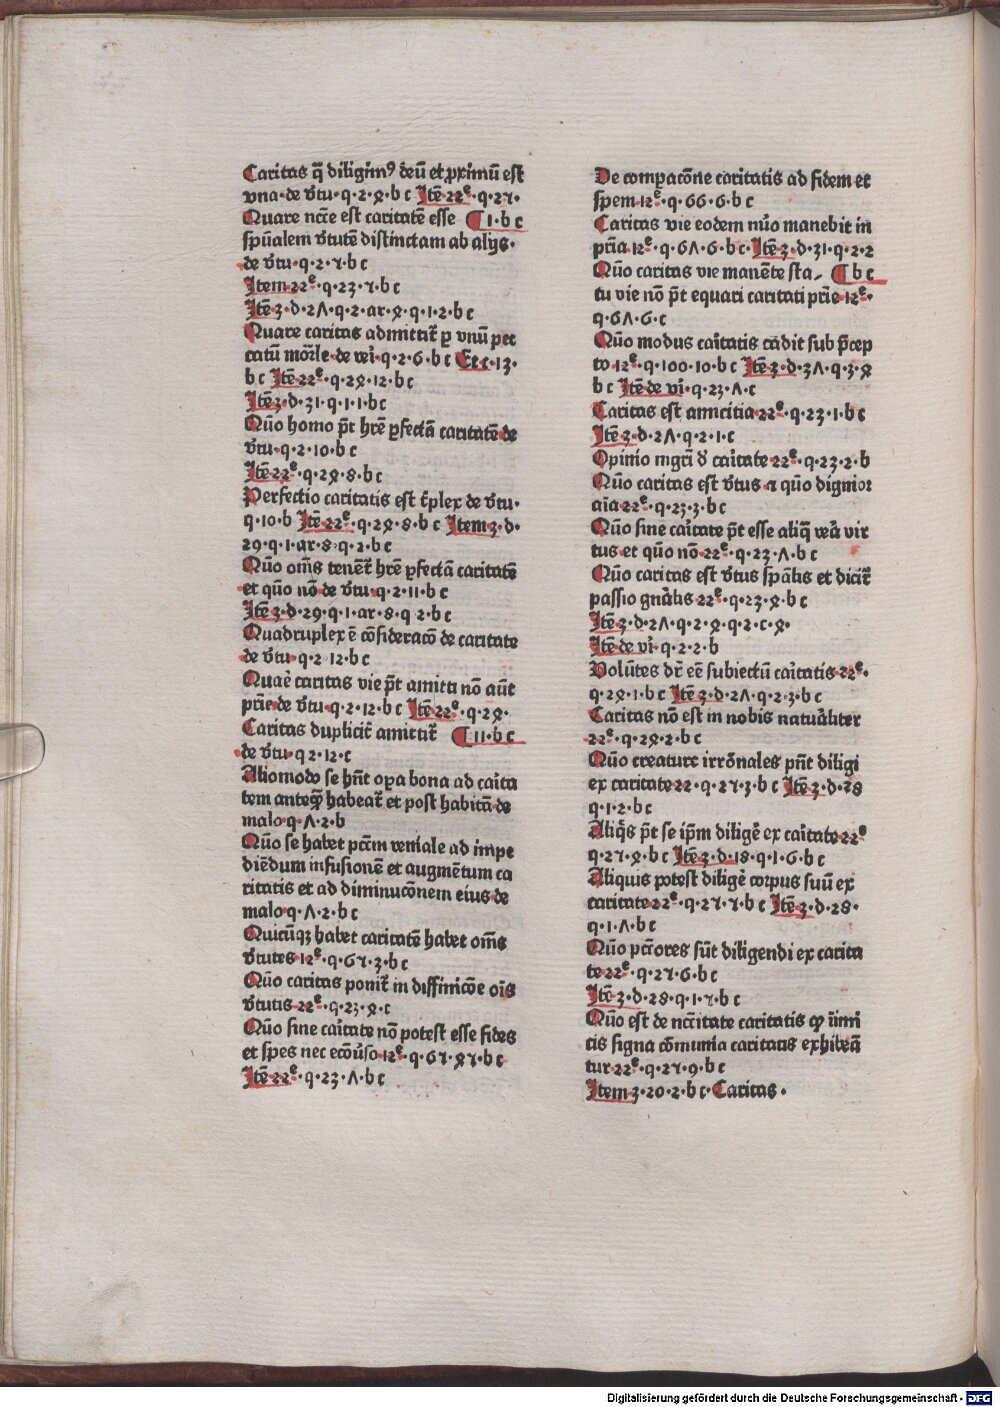 Caritas q̄ diligim⁹ deū et ꝓximū est
vna·de v̄tu·q·2·ꝝ·b c Itē 22ᵉ·q·27·
Quare ncīe est caritatē esse ¶ 1·b c
spūalem v̄tutē distinctam ab alijs·
de v̄tu·q·2·7·b c
Item 22ᵉ·q·23·7·b c
Itē 3·d·2Λ·q·2·ar·ꝝ·q·1·2·b c
Quare caritas admittit᷑ ꝑ vnū pec
catū mor̄le·de vei᷑·q·2·6·b c Et c·13·
b c Itē 22ᵉ·q·2ꝝ·12·b c
Itē 3·d·31·q·1·1·b c
Quō homo p̄t hr̄e ꝑfectā caritatē de
v̄tu·q·2·10·b c
Itē 22ᵉ·q·2ꝝ·8·b c
Perfectio caritatis est t̄plex de v̄tu·
q·10·b Itē 22ᵉ·q·2ꝝ·8·b c Item 3·d·
29·q·1·ar·8·q·2·b c
Quō om̄s tenēt᷑ hr̄e ꝑfectā caritatē
et quō nō de v̄tu·q·2·11·b c
Itē 3·d·29·q·1·ar·8·q 2·b c
Quadruplex ē cōsideracō de caritate
de v̄tu·q·2 12·b c
Quaē caritas vie p̄t amitti nō aūt
pr̄ie de v̄tu·q·2·12·b c Itē 22ᵉ·q·2ꝝ·
Caritas duplicit᷑ amittit᷑ ¶ 11·b c
de v̄tu·q·2·12·c
Aliomodo se hn̄t oꝑa bona ad cai᷑ta
tem anteq̄ꝫ habeat᷑ et post habitā de
malo·q·Λ·2·b
Quō se habet pctm̄ veniale ad impe
diēdum infusionē et augmētum ca
ritatis et ad diminucōnem eius de
malo·q·Λ·2·b c
Quicūqꝫ habet caritatē habet om̄s
v̄tutes 12ᵉ·q·67·3·b c
Quō caritas ponit᷑ in diffinicōe oīs
v̄tutis 22ᵉ·q·23·ꝝ·c
Quō sine cai᷑tate nō potest esse fides
et spes nec ecōu᷑so 12ᵉ·q·67·ꝝ7·b c
Itē 22ᵉ·q·23·Λ·b c
De compacōne caritatis ad fidem et
spem 12ᵉ·q·66·6·b c
Caritas vie eodem nu᷑o manebit in
pr̄ia 12ᵉ·q·6Λ·6·b c·Itē 3·d·31·q·2·2
Quō caritas vie manēte sta⸗ ¶ b c
tu vie nō p̄t equari caritati pr̄ie 12ᵉ·
q·6Λ·6·c
Quō modus cai᷑tatis cadit sub p̄cep
to·12ᵉ·q·100·10·b c Itē 3·d·3Λ·q·3·ꝝ
b c Itē de vi᷑·q·23·Λ·c
Caritas est amicitia 22ᵉ·q·23·1·b c
Itē 3·d·2Λ·q·2·1·c
Opinio mgr̄i d̄ cai᷑tate 22ᵉ·q·23·2·b
Quō caritas est v̄tus ⁊ quō dignior
aīa 22ᵉ·q·23·3·b c
Quō sine cai᷑tate p̄t esse aliq̄ vea᷑ vir
tus et quō nō 22ᵉ·q·23·Λ·b c
Quō caritas est v̄tus spāl̄is et dicit᷑
passio gnāl̄is 22ᵉ·q·23·ꝝ·b c
Itē 3·d·2Λ·q·2·ꝝ·q·2·c·ꝝ·
Itē de vi᷑·q·2·2·b
Volūtes dr̄ eē subiectū cai᷑tatis 22ᵉ·
q·2ꝝ·1·b c Itē 3·d·2Λ·q·2·3·b c
Caritas nō est in nobis natua᷑liter
22ᵉ·q·2ꝝ·2·b c
Quō creature irrōnales pn̄t diligi
ex caritate 22·q·27·3·b c Itē 3·d·28
q·1·2·b c
Aliq̄s p̄t se ip̄m dilige᷑ ex cai᷑tate 22ᵉ
q·27·ꝝ·b c Itē 3·d·18·q·1·6·b c
Aliquis potest dilige᷑ corpus suū ex
caritate 22ᵉ·q·27·7·b c Itē 3·d·28·
q·1·Λ·b c
Quō pctōres sūt diligendi ex carita
te 22ᵉ·q·27·6·b c
Itē 3·d·28·q·1·7·b c
Quō est de nccītate caritatis ꝙ iimī
tis signa cōmunia caritatis exhibeā
tur 22ᵉ·q·27·9·b c
Item 3·20·2·b c·Caritas·
Digitalisierung gefördert durch die Deutsche Forschungsgemeinschaft - DFG